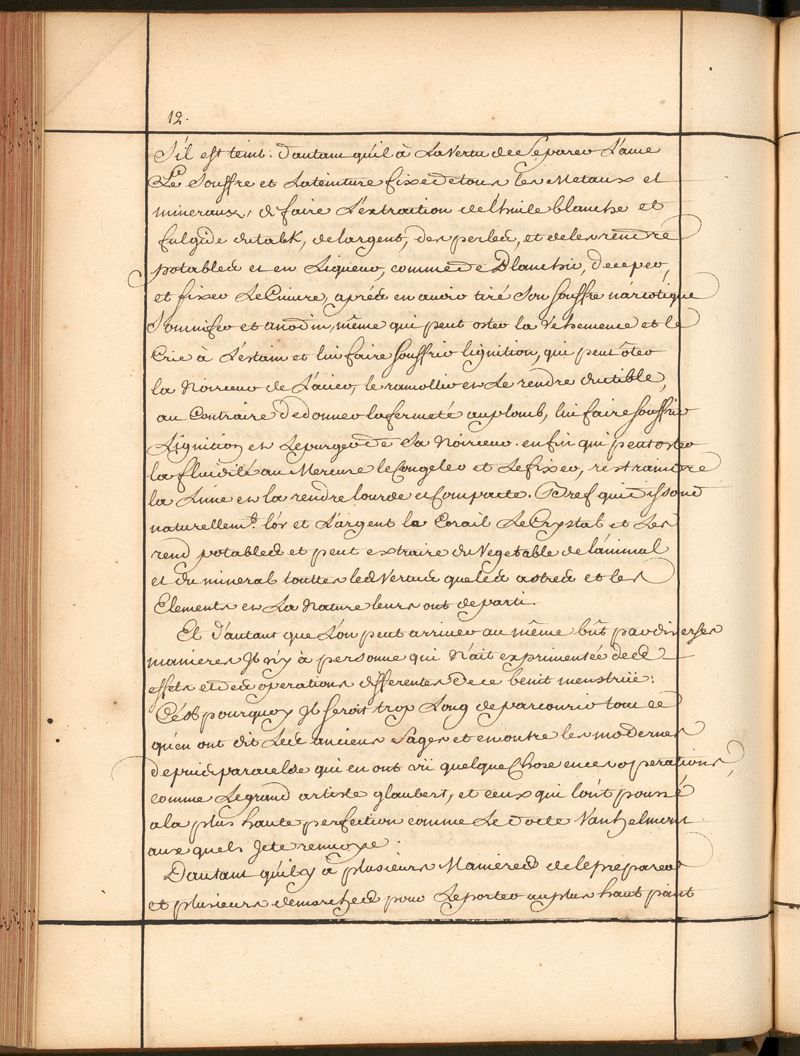 12.
S'il est teint: d'autant qu'il à La Vertu de Separer L'ame
Le Souffre et La teinture fixe de tous les Metaux et
mineraux, de faire L'extraction de l'huile blanche et
fulgide du talk, de largent, des perles, et de les rendre
potables et en Liqueur, comme de Blanchir,
et fixer Le Cuivre, aprés en avoir tiré Son Souffre narcotique
Somnifer et anodin, même qui peut oster la Vehemence et le
Crie à L'estain et lui faire Souffrir lignition, qui peut ôter
la Noirceur de L'acier, le ramollir et Le rendre ductible,
au Contraire de donner la fermeté au plomb, lui faire Souffrir
L'ignition et Le purger de Sa Noirceur. enfin qui peut oster
la fluidité au Mercure le Congeler et Le fixer, restraindre
la Lune et la rendre lourde et Compacte. Bref qui dissoud
naturellemt. l'or et L'argent le Corail Le Crystal et Les
rend potables et peut extraire du Vegetable de l'animal
et du mineral touttes les Vertus que les astres et les
Elements et La Nature leurs ont departi.
Et d'autant que L'on peut arriver au même bût par diverses
manieres Jl n'y à personne qui N'ait exprimentée des
effets et des operations differentes de ce benit menstriie:
C'est pourquoy Jl Seroit trop Long de parcourir tout ce
qu'en ont dit Les anciens Sages et en outre les modernes
depuis paracelse qui en ont vû quelque Chose en ces operations,
comme Le grand artiste glaubert, et ceux qui l'ont poussé
a la plus haute perfection comme Le docte Vanhelmont
aux quels Je te renvoye.
D'autant qu'il y à plusieurs Manieres de le preparer
et plusieurs demarches pour Le porter au plus haut point